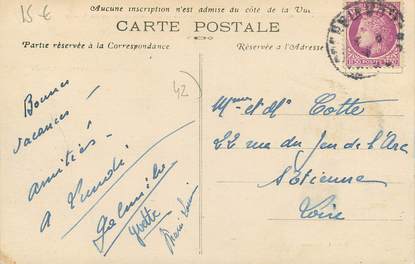 15 €
Aucune inscription n'est admise du côté de la Vue
CARTE POSTALE
Partie réservée à la Correspondance
Réservée à l'Adresse
42
Bonnes
vacances
amitiés
à
Mme et Mr Cotte
22 rue du Jeu de l'Arc
St Etienne
Loire
Yvette